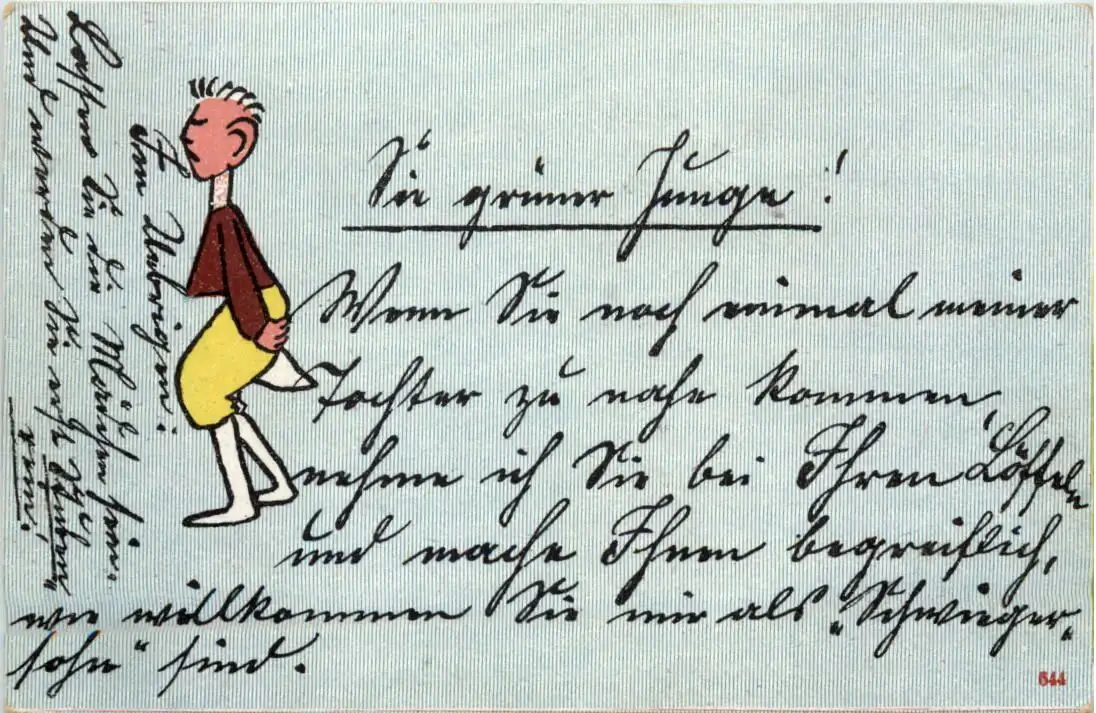 Sie grüner Junge!
Wenn Sie noch einmal meiner
Tochter zu nahe kommen,
nehme ich Sie bei Ihren Löffeln
und mache Ihnen begreiflich,
wie willkommen Sie mir als „Schwieger-
sohn“ sind.
Im Uebrigen:
Lassen Sie die Mädchen sein.
Und werden Sie erst
rein.
644